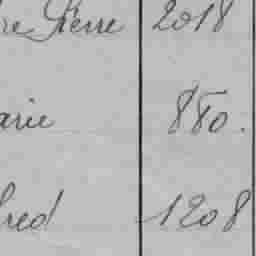 re Pierre 2018
arie 880.
fred 1208